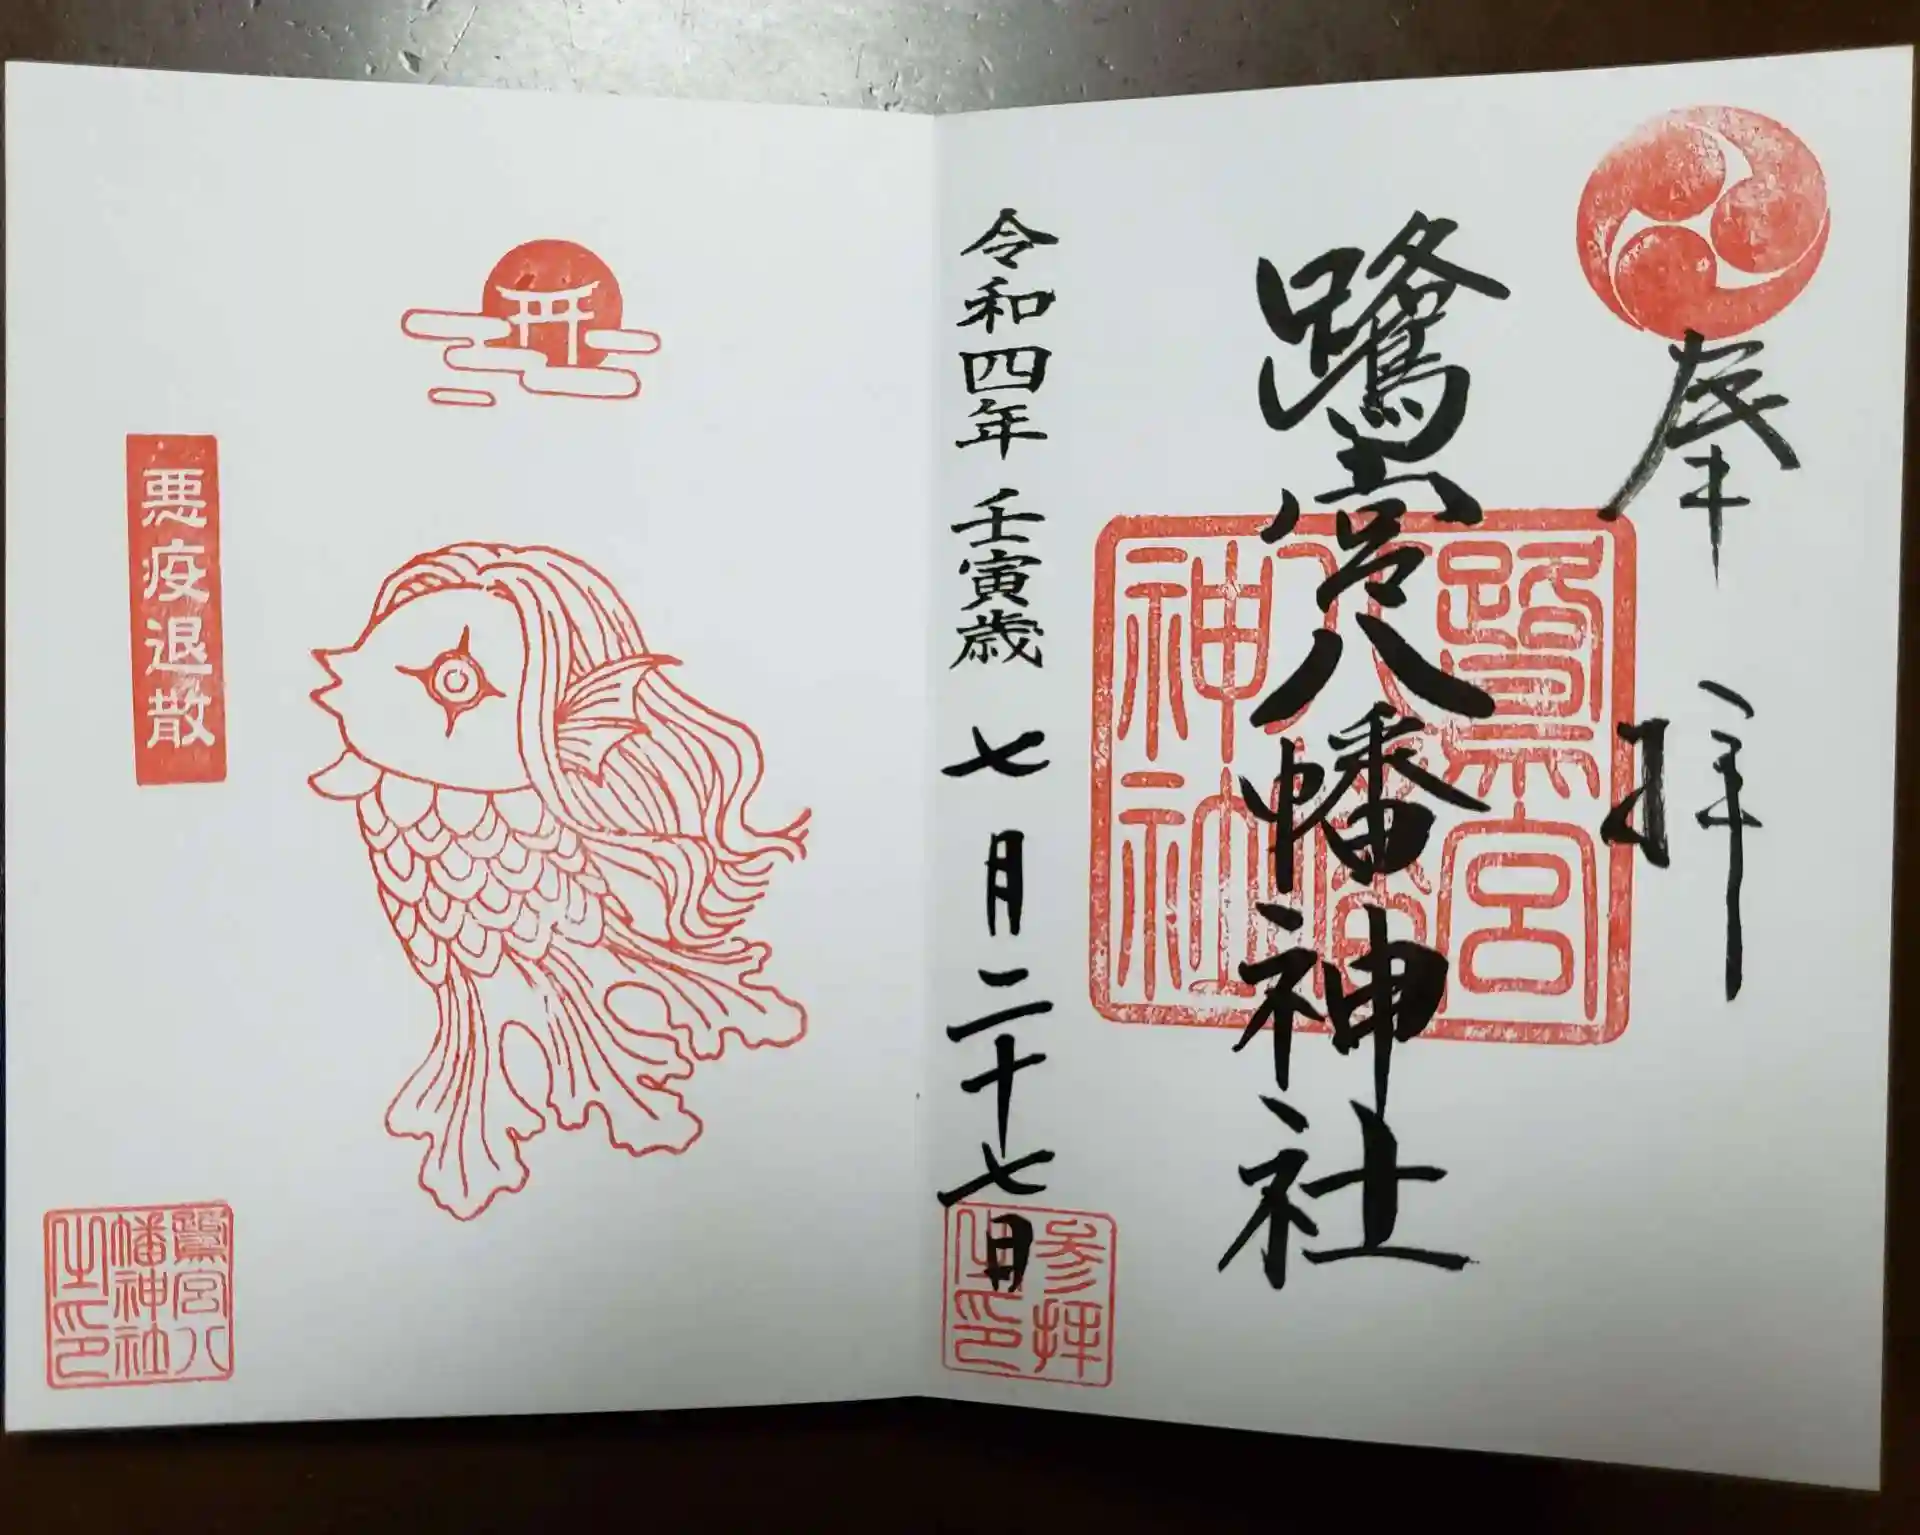 奉拝
鷺宮八幡神社
鷺宮八幡神社
令和四年 壬寅歳 七月二十七日
参拝之印
悪疫退散
鷺宮八幡神社之印